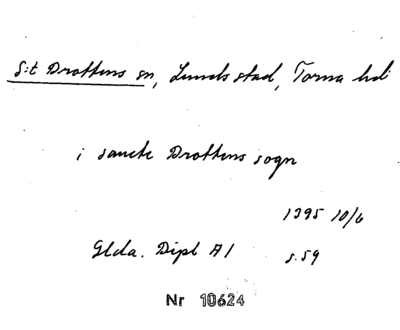 S:t Drottens sn, Lunds stad, Torna hd
i sancte Drottens sogn
1395 10/6
Glda. Dipl A1 s. 59
Nr 10624